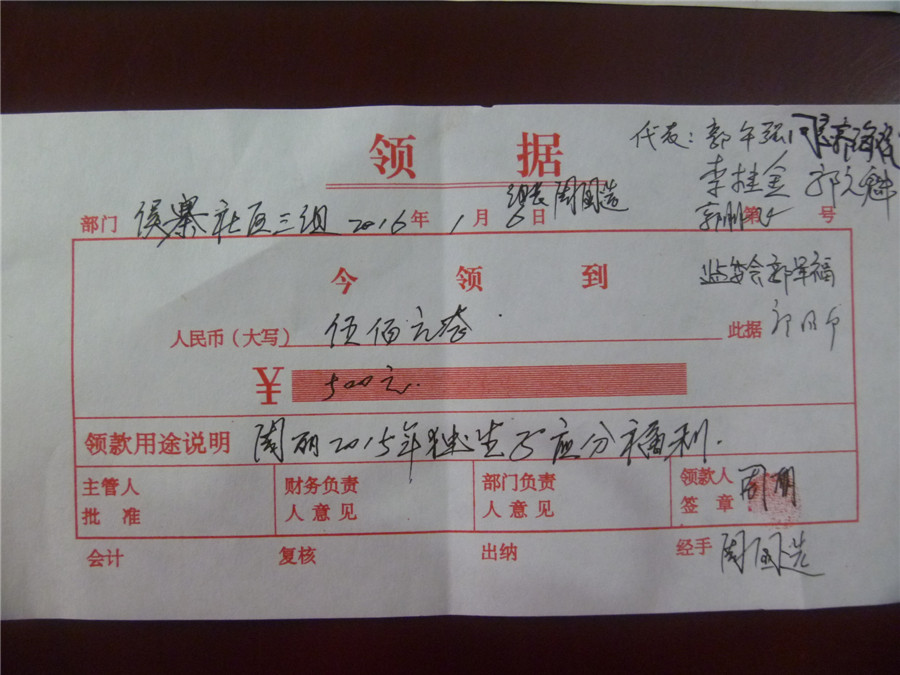 领 据
代表:郭午强
李桂金 郭文魁
组长周国造
部门 侯寨社区三组 2016年1月6日 第 号
今 领 到
监委会郭军福
人民币(大写) 伍佰元整 此据
¥ 500元.
领款用途说明 周丽2015年独生子应分福利.
主管人 批 准
财务负责 人意见
部门负责 人意见
领款人 签 章 周丽
会计 复核 出纳 经手 周国造